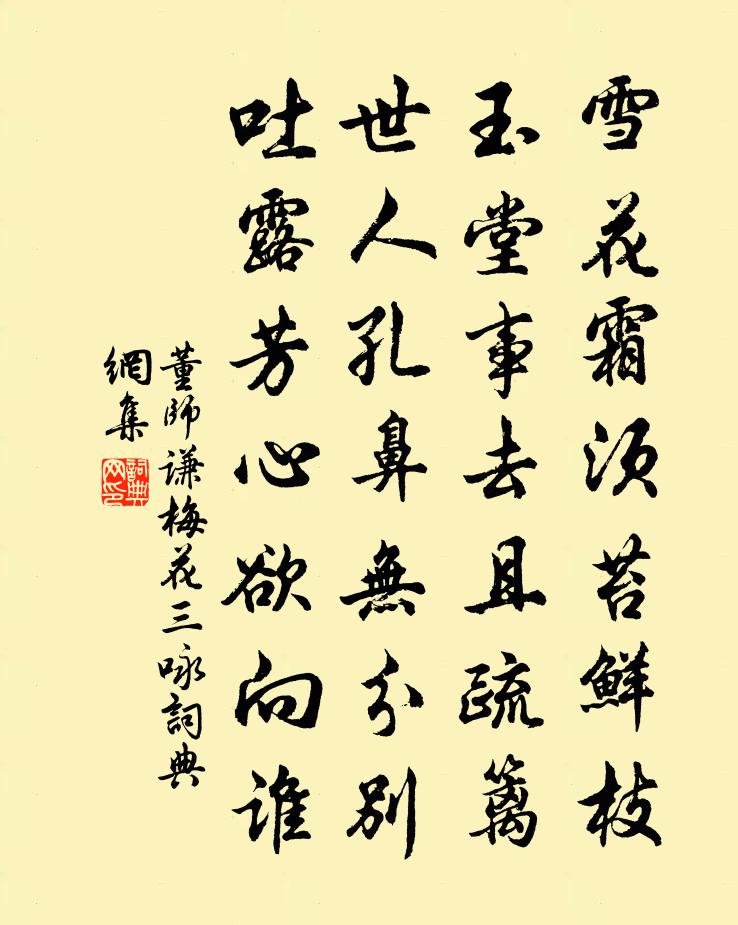 雪花霜須苔鮮枝
玉堂事去且疏籬
世人孔鼻無分別
吐露芳心欲向誰
董師谦梅花三咏詞典
網集
詞典
网印